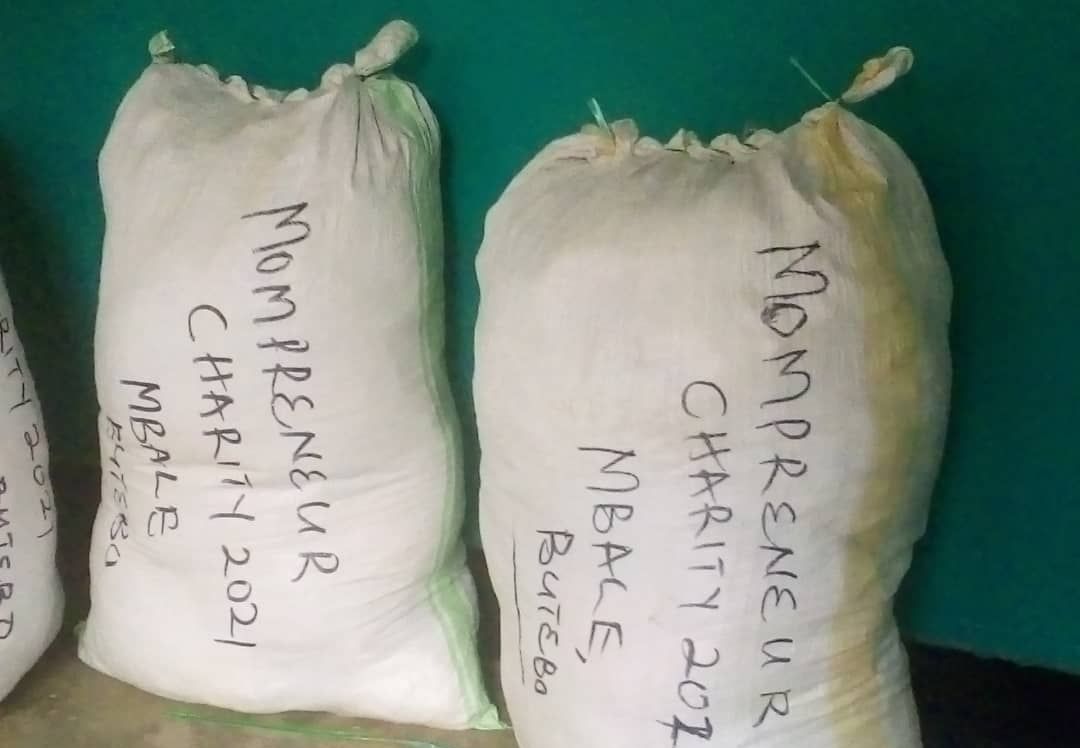 RITY 2021
BUTEBO
MOMPRENEUR
CHARITY 2021
MBALE
BYTEBO
MOMPRENEUR
CHARITY 2021
MBALE,
BUTEBO